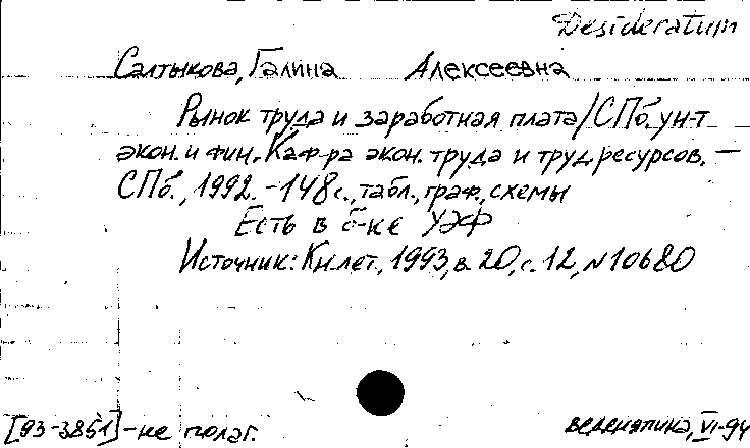 Desideratum
Салтыкова, Галина Алексеевна
Рынок труда и заработная плата/СПб. ун-т
экон. и фин., Каф-ра экон. труда и труд. ресурсов. —
СПб., 1992. - 148 с., табл., граф., схемы
Есть в б-ке УЭФ
Источник: Кн. лет., 1993, в. 20, с. 12, N 10680
[93-3851] - не полаг.
VI-94